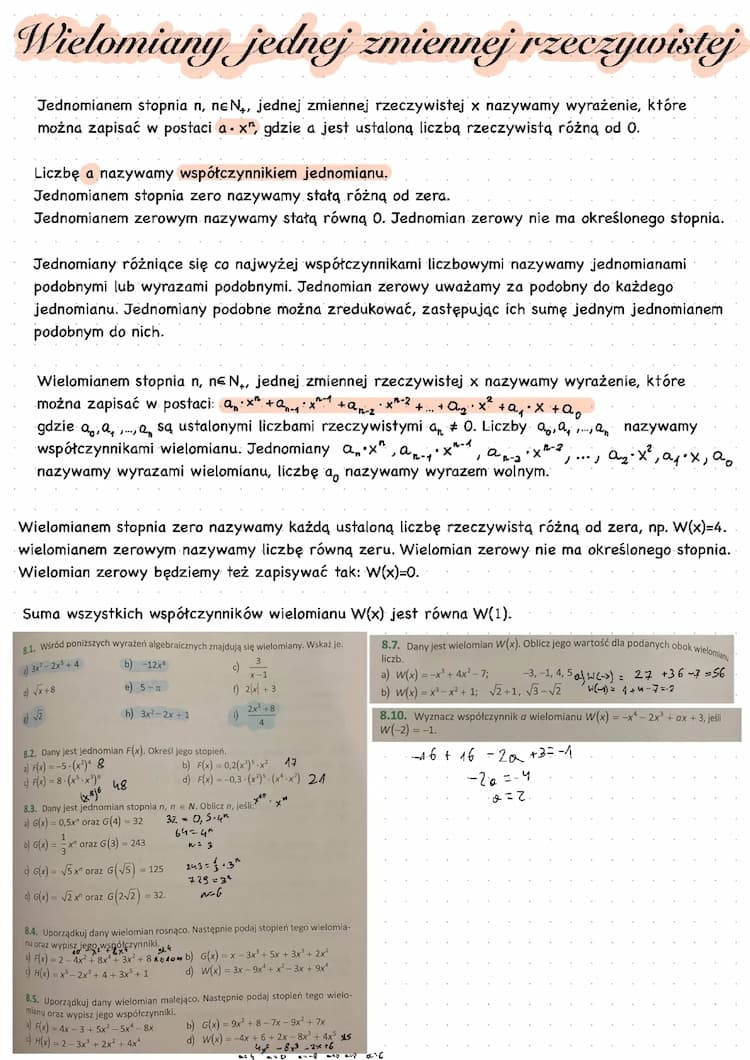 Wielomiany jednej zmiennej rzeczywistej
Jednomianem stopnia n, n∈N₊, jednej zmiennej rzeczywistej x nazywamy wyrażenie, które
można zapisać w postaci a·xⁿ, gdzie a jest ustaloną liczbą rzeczywistą różną od 0.
Liczbę a nazywamy współczynnikiem jednomianu.
Jednomianem stopnia zero nazywamy stałą różną od zera.
Jednomianem zerowym nazywamy stałą równą 0. Jednomian zerowy nie ma określonego stopnia.
Jednomiany różniące się co najwyżej współczynnikami liczbowymi nazywamy jednomianami
podobnymi lub wyrazami podobnymi. Jednomian zerowy uważamy za podobny do każdego
jednomianu. Jednomiany podobne można zredukować, zastępując ich sumę jednym jednomianem
podobnym do nich.
Wielomianem stopnia n, n∈N₊, jednej zmiennej rzeczywistej x nazywamy wyrażenie, które
można zapisać w postaci: aₙ·xⁿ+aₙ₋₁·xⁿ⁻¹+aₙ₋₂·xⁿ⁻²+...+a₂·x²+a₁·x+a₀
gdzie a₀,a₁,...,aₙ są ustalonymi liczbami rzeczywistymi aₙ ≠ 0. Liczby a₀,a₁,...,aₙ nazywamy
współczynnikami wielomianu. Jednomiany aₙ·xⁿ, aₙ₋₁·xⁿ⁻¹, aₙ₋₂·xⁿ⁻², ..., a₂·x², a₁·x, a₀
nazywamy wyrazami wielomianu, liczbę a₀ nazywamy wyrazem wolnym.
Wielomianem stopnia zero nazywamy każdą ustaloną liczbę rzeczywistą różną od zera, np. W(x)=4.
wielomianem zerowym nazywamy liczbę równą zeru. Wielomian zerowy nie ma określonego stopnia.
Wielomian zerowy będziemy też zapisywać tak: W(x)=0.
Suma wszystkich współczynników wielomianu W(x) jest równa W(1).
8.1. Wśród poniższych wyrażeń algebraicznych znajdują się wielomiany. Wskaż je.
b) -12x⁸ c) 3/(x-1)
d) √x+8 e) 5-π f) 2|x|+3
g) √2 h) 3x²-2x+1 i) (2x³+8)/4
8.2. Dany jest jednomian F(x). Określ jego stopień.
a) F(x)=-5·(x²)⁴ 8 b) F(x)=0,2(x³)⁵·x² 17
48
21
8.3. Dany jest jednomian stopnia n, n ∈ N. Oblicz n, jeśli:
a) G(x) = 0,5xⁿ oraz G(4) = 32 32=0,5·4ⁿ
64=4ⁿ
n=3
b) G(x) = 1/3 xⁿ oraz G(3) = 243
c) G(x) = √5xⁿ oraz G(√5) = 125 243=1/3·3ⁿ
729=3ⁿ
d) G(x) = √2xⁿ oraz G(2√2) = 32. n=6
8.4. Uporządkuj dany wielomian rosnąco. Następnie podaj stopień tego wielomia-
nu oraz wypisz jego współczynniki.
b) G(x) = x - 3x³ + 5x + 3x³ + 2x²
c) H(x) = x⁵ - 2x² + 4 + 3x³ + 1 d) W(x) = 3x - 9x⁴ + x² - 3x + 9x⁴
8.5. Uporządkuj dany wielomian malejąco. Następnie podaj stopień tego wielo-
mianu oraz wypisz jego współczynniki.
a) F(x) = 4x - 3 + 5x² - 5x⁴ - 8x b) G(x) = 9x² + 8 - 7x - 9x² + 7x
c) H(x) = 2 - 3x³ + 2x² + 4x⁴ d) W(x) = -4x + 6 + 2x - 8x³ + 4x⁵
8.7. Dany jest wielomian W(x). Oblicz jego wartość dla podanych obok wielomianu
liczb.
a) W(x) = -x³ + 4x² - 7; -3, -1, 4, 5 a) W(-3) = 27+36-7=56
b) W(x) = x³ - x² + 1; √2+1, √3-√2 W(-1) = 1+4-7=-2
8.10. Wyznacz współczynnik a wielomianu W(x) = -x⁴ - 2x³ + ax + 3, jeśli
W(-2) = -1.
-16+16-2a+3=-1
-2a=-4
a=2